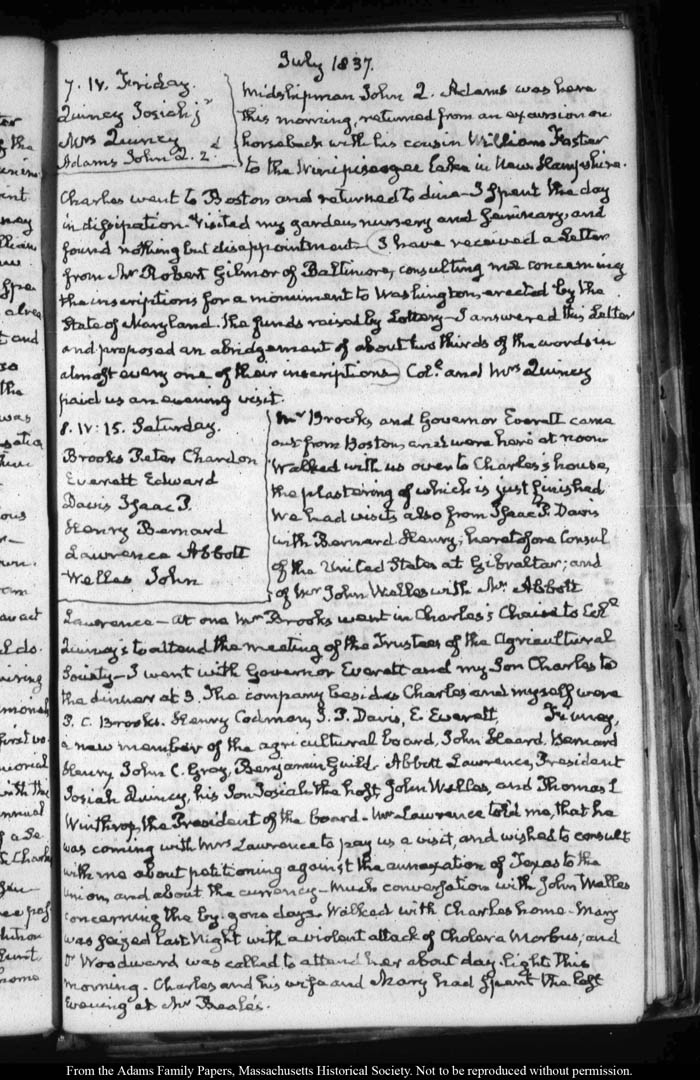 July 1837.
7. IV. Friday.
Quincy Josiah jr
Mrs Quincy
Adams John Q. 2d
Midshipman John Q. Adams was here
this morning, returned from an excursion on
horseback with his cousin William Foster
to the Winipiseogee Lake in New Hampshire.
Charles went to Boston and returned to dine—I spent the day
in dissipation. Visited my garden, nursery and Seminary, and
found nothing but disappointment—I have received a Letter
from Mr Robert Gilmor of Baltimore, consulting me concerning
the inscriptions for a monument to Washington, erected by the
State of Maryland. The funds raised by Lottery—I answered this Letter
and proposed an abridgement of about two thirds of the words in
almost every one of their inscriptions—Col. and Mrs Quincy
paid us an evening visit.
8. IV. 15. Saturday.
Brooks Peter Chardon
Everett Edward
Davis Isaac P.
Henry Bernard
Lawrence Abbott
Welles John
Mr Brooks and Governor Everett came
out from Boston, and were here at noon
Walked with us over to Charles's house,
the plastering of which is just finished
We had visits also from Isaac P. Davis
with Bernard Henry, heretofore Consul
of the United States at Gibraltar; and
of Mr John Welles with Mr Abbott
Lawrence—at one Mr Brooks went in Charles's Chaise to
Quincy's to attend the meeting of the Trustees of the Agricultural
Society—I went with Governor Everett and my Son Charles to
the dinner at 3. The company besides Charles and myself were
P. C. Brooks. Henry Codman, I. P. Davis, E. Everett,
a new member of the agricultural board, John Heard. Bernard
Henry John C. Gray, Benjamin Guild. Abbott Lawrence, President
Josiah Quincy, his Son Josiah the host, John Welles, and Thomas L
Winthrop, the President of the board. Mr Lawrence told me, that he
was coming with Mrs Lawrence to pay us a visit, and wished to consult
with me about petitioning against the annexation of Texas to the
Union, and about the currency—Much conversation with John Welles
concerning the by-gone days Walked with Charles home. Mary
was seized last Night with a violent attack of Cholera Morbus; and
Dr Woodward was called to attend her about day-light this
morning. Charles and his wife and Mary had spent the last
evening at Mr Beale's.
From the Adams Family Papers, Massachusetts Historical Society. Not to be reproduced without permission.